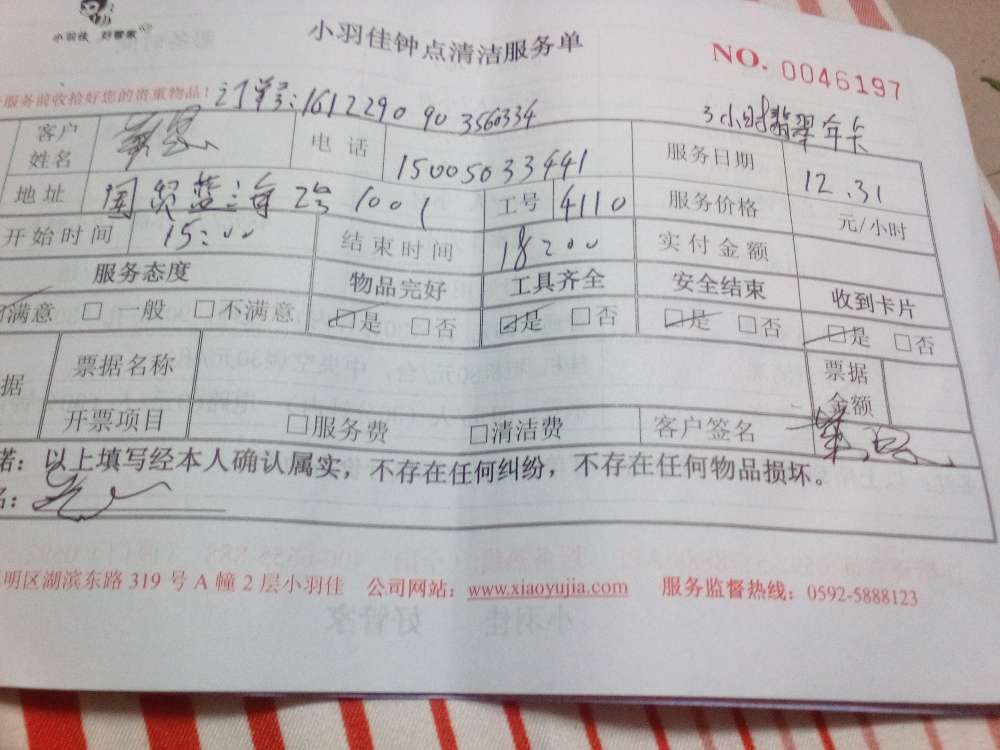 小羽佳 好管家
小羽佳钟点清洁服务单
NO. 0046197
服务前收拾好您的贵重物品!
订单号:161229090356 0334
3小时翡翠年卡
客户姓名 电话 15005033441 服务日期 12.31
地址 国贸蓝海 2号 1001 工号 4110 服务价格 元/小时
开始时间 15:00 结束时间 18:00 实付金额
服务态度 物品完好 工具齐全 安全结束 收到卡片
满意 □ 一般 □不满意 ☑是 □否 ☑是 □否 ☑是 □否 ☑是 □否
据 票据名称 票据金额
开票项目 □服务费 □清洁费 客户签名
诺:以上填写经本人确认属实,不存在任何纠纷,不存在任何物品损坏。
名:
明区湖滨东路 319 号 A 幢 2 层小羽佳 公司网站:www.xiaoyujia.com 服务监督热线:0592-5888123